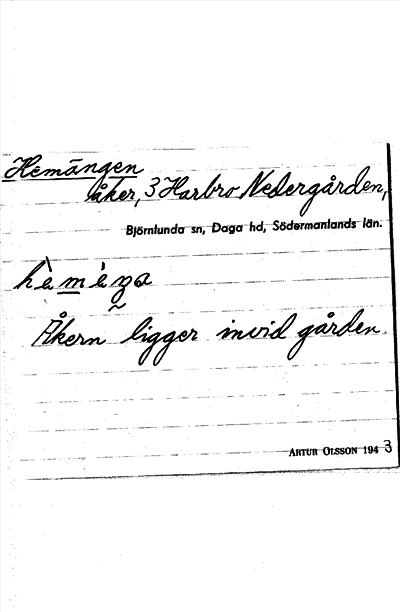 Hemängen
åker, 3 Harbro Nedergården,
Björnlunda sn, Daga hd, Södermanlands län.
Åkern ligger invid gården.
ARTUR OLSSON 1943